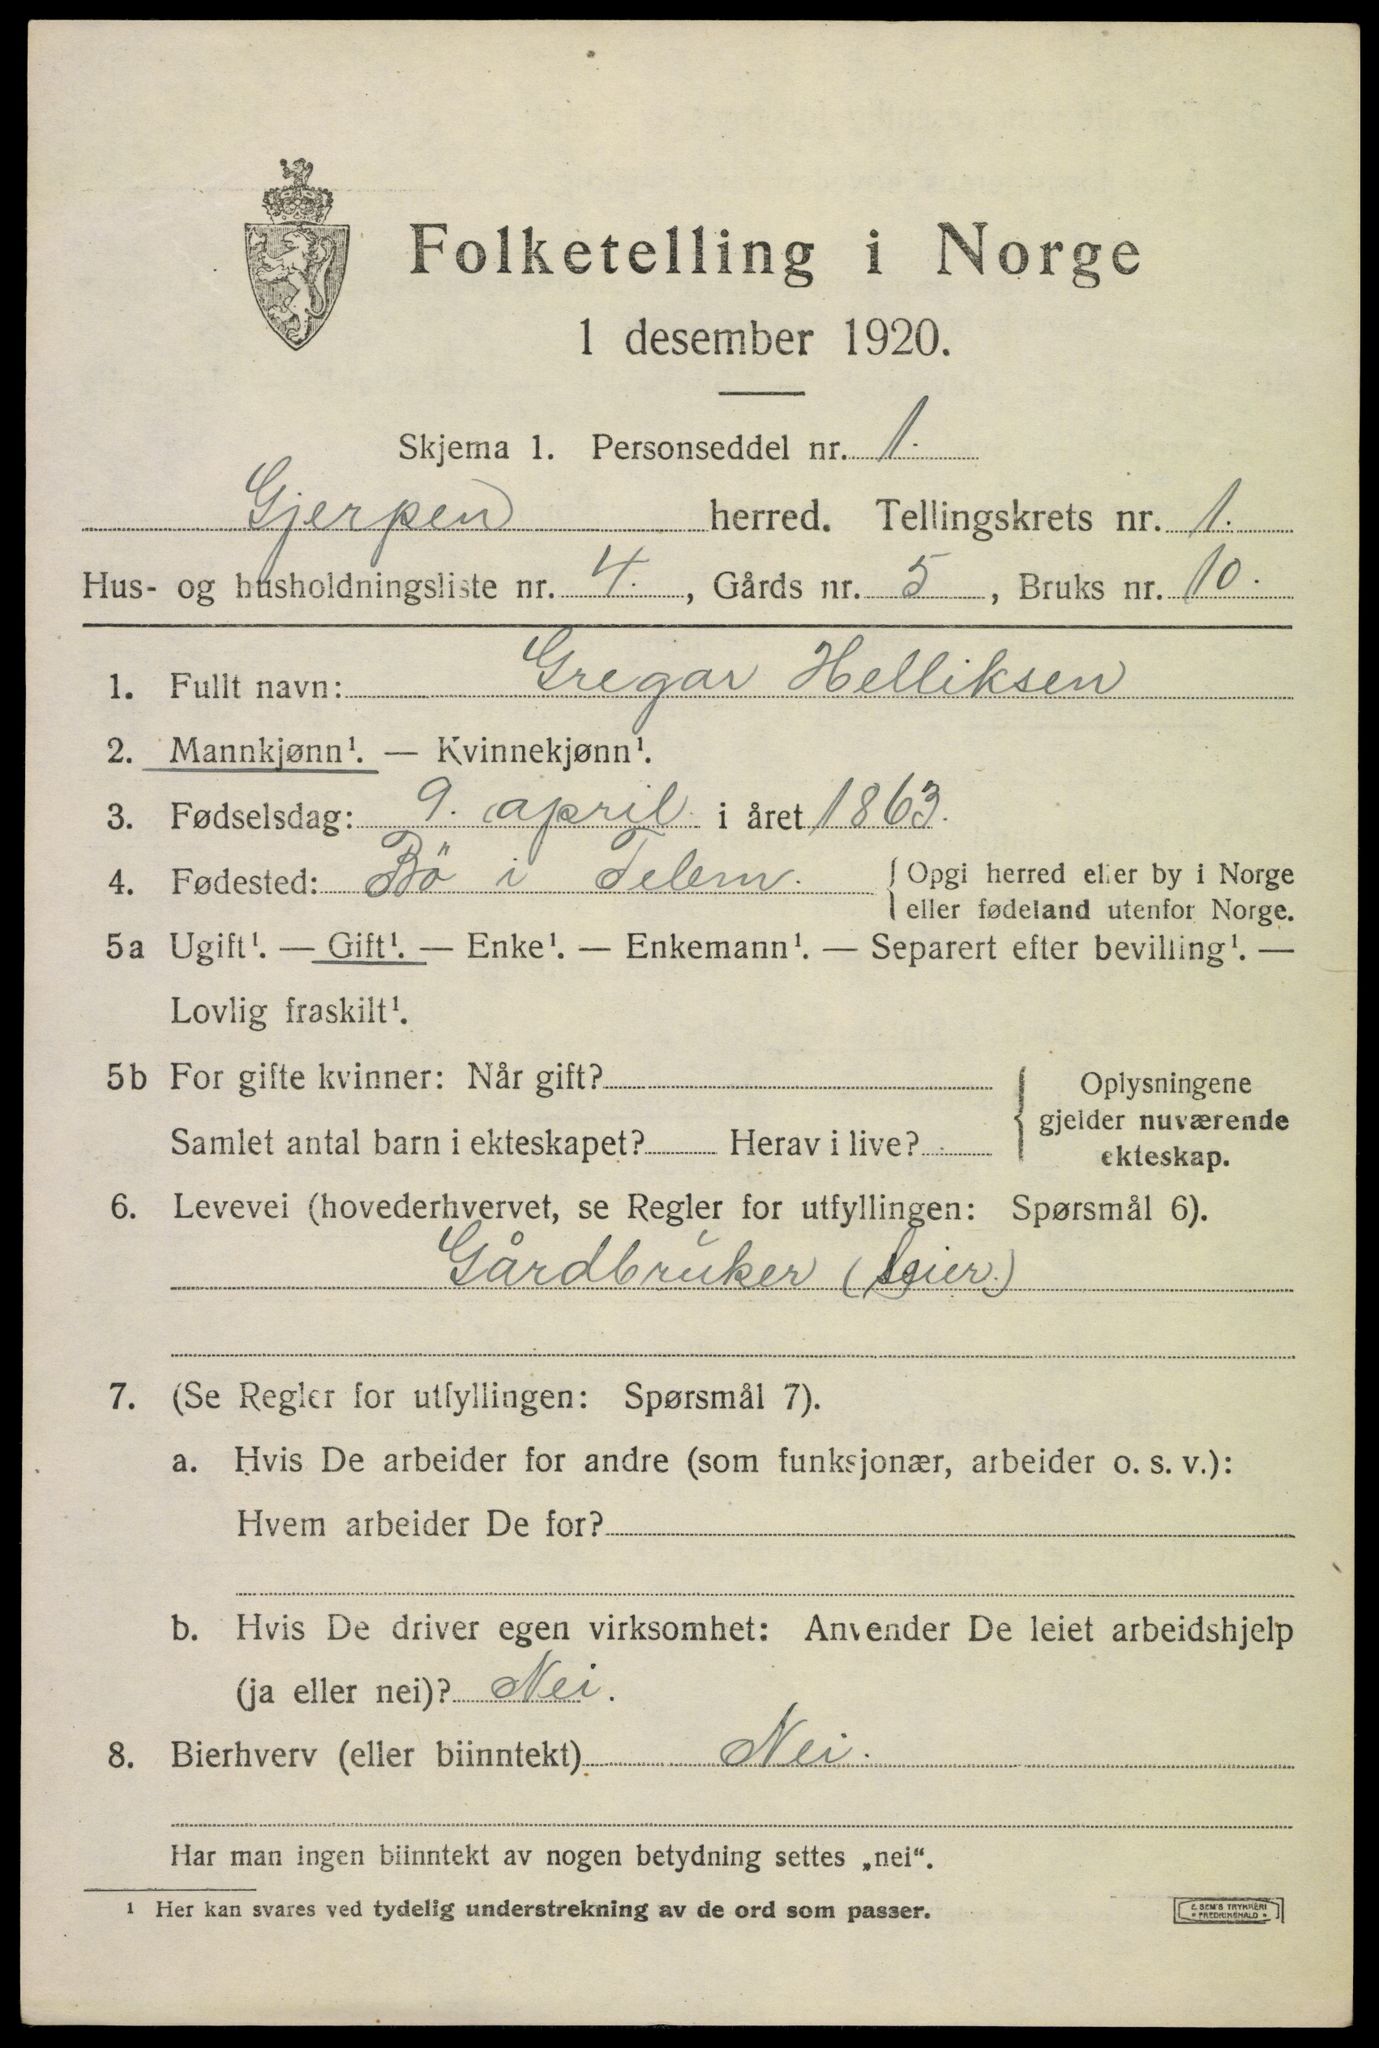 Folketelling i Norge
1 desember 1920.
Skjema 1. Personseddel nr. 1.
Gjerpen herred. Tellingskrets nr. 1.
Hus- og husholdningsliste nr. 4., Gårds nr. 5, Bruks nr. 10.
1. Fullt navn: Gregar Helliksen
2. Mannkjønn¹. — Kvinnekjønn¹.
3. Fødselsdag: 9. april i året 1863.
4. Fødested: Bö i Telem. { Opgi herred eller by i Norge
eller fødeland utenfor Norge.
5a Ugift¹. — Gift¹. — Enke¹. — Enkemann¹. — Separert efter bevilling¹. —
Lovlig fraskilt¹.
5b For gifte kvinner: Når gift?
Samlet antal barn i ekteskapet? Herav i live?
{ Oplysningene
gjelder nuværende
ekteskap.
6. Levevei (hovederhvervet, se Regler for utfyllingen: Spørsmål 6).
Gårdbruker (Leier.)
7. (Se Regler for utfyllingen: Spørsmål 7).
a. Hvis De arbeider for andre (som funksjonær, arbeider o. s. v.):
Hvem arbeider De for?
b. Hvis De driver egen virksomhet: Anvender De leiet arbeidshjelp
(ja eller nei)? Nei.
8. Bierhverv (eller biinntekt) Nei.
Har man ingen biinntekt av nogen betydning settes „nei“.
¹ Her kan svares ved tydelig understrekning av de ord som passer.
E. SEM'S TRYKKERI
* FREDRIKSHALD *